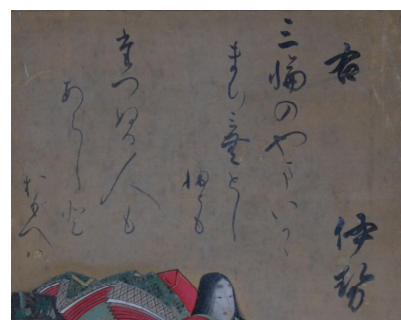 右　伊勢
三輪のやまいかに
まちみむとし
ふとも
たつぬる人も
あらしと
おもへは